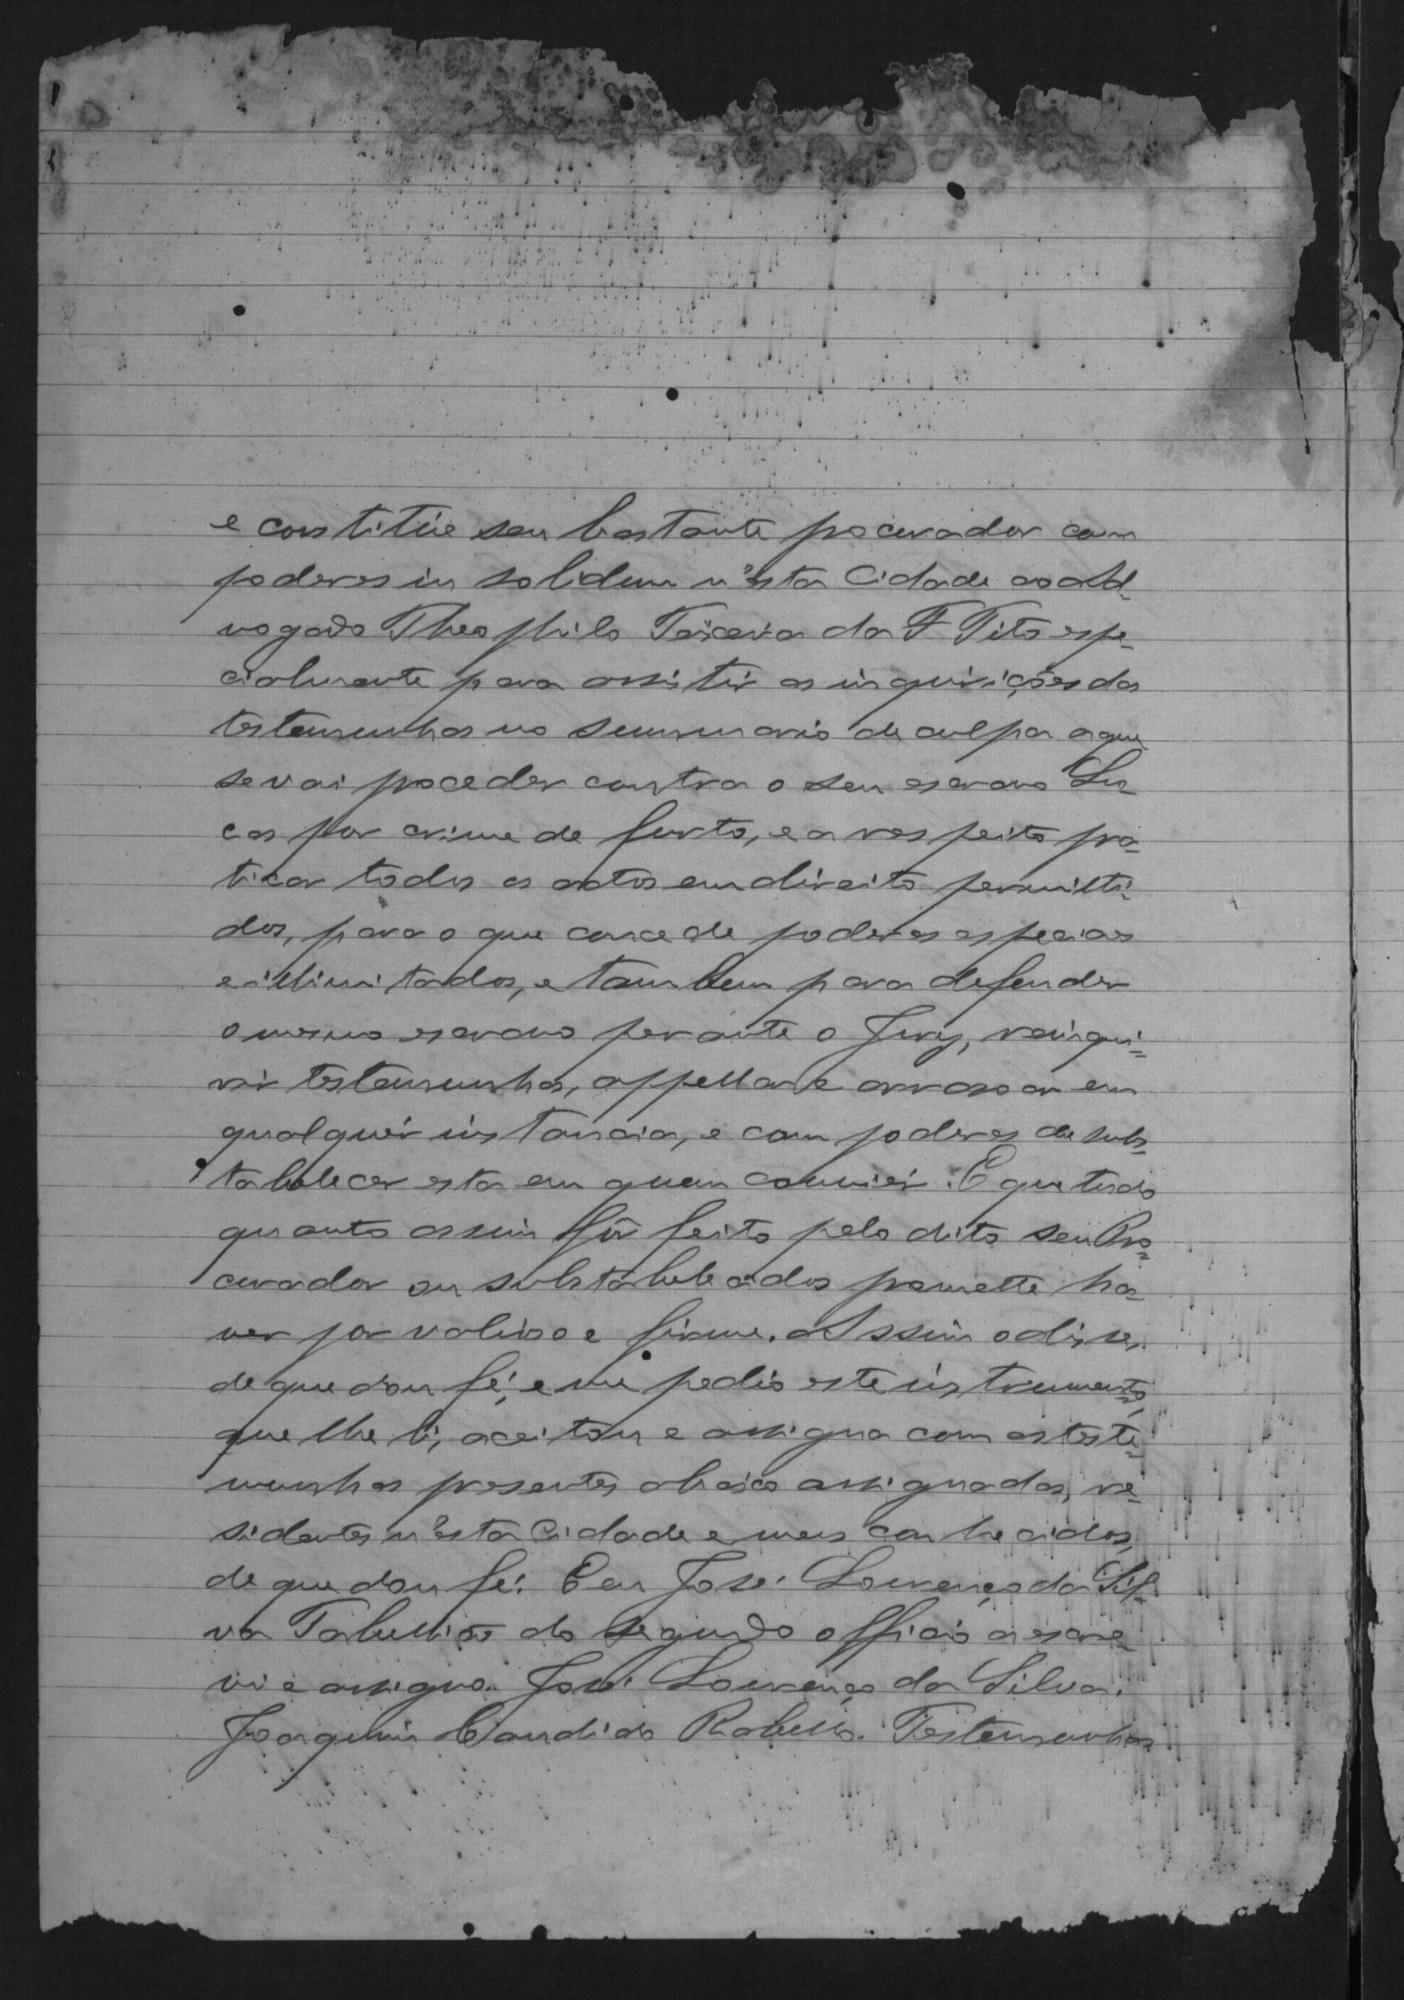 e constitúe seu bastante procurador com
poderes in solidum n'esta Cidade ao Ad-
vogado Theophilo Teixeira da F. Tito espe-
cialmente para assistir as inquirições das
testemunhas no summario de culpa a que
se vai proceder contra o seu escravo Lu-
cas por crime de furto, e a respeito pra-
ticar todos os actos em direito permitti-
dos, para o que concede poderes especiaes
e illimitados, e tambem para defender
o mesmo escravo perante o Jury, reinqui-
rir testemunhas, appellar e arrasoar em
qualquer instancia, e com poderes de subs-
tabelecer esta em quem convier. E que tudo
quanto assim fôr feito pelo dito seu Pro-
curador ou substabelecidos promette ha-
ver por valioso e firme. Assim o disse,
de que dou fé, e me pedio este instrumento,
que lhe li, aceitou e assigna com as teste-
munhas presentes abaixo assignadas, re-
sidentes n'esta Cidade e meus conhecidos,
de que dou fé. E eu José Lourenço da Sil-
va Tabellião do segundo officio a escre-
vi e assigno. José Lourenço da Silva.
Joaquim Candido Rabello. Testemunhas